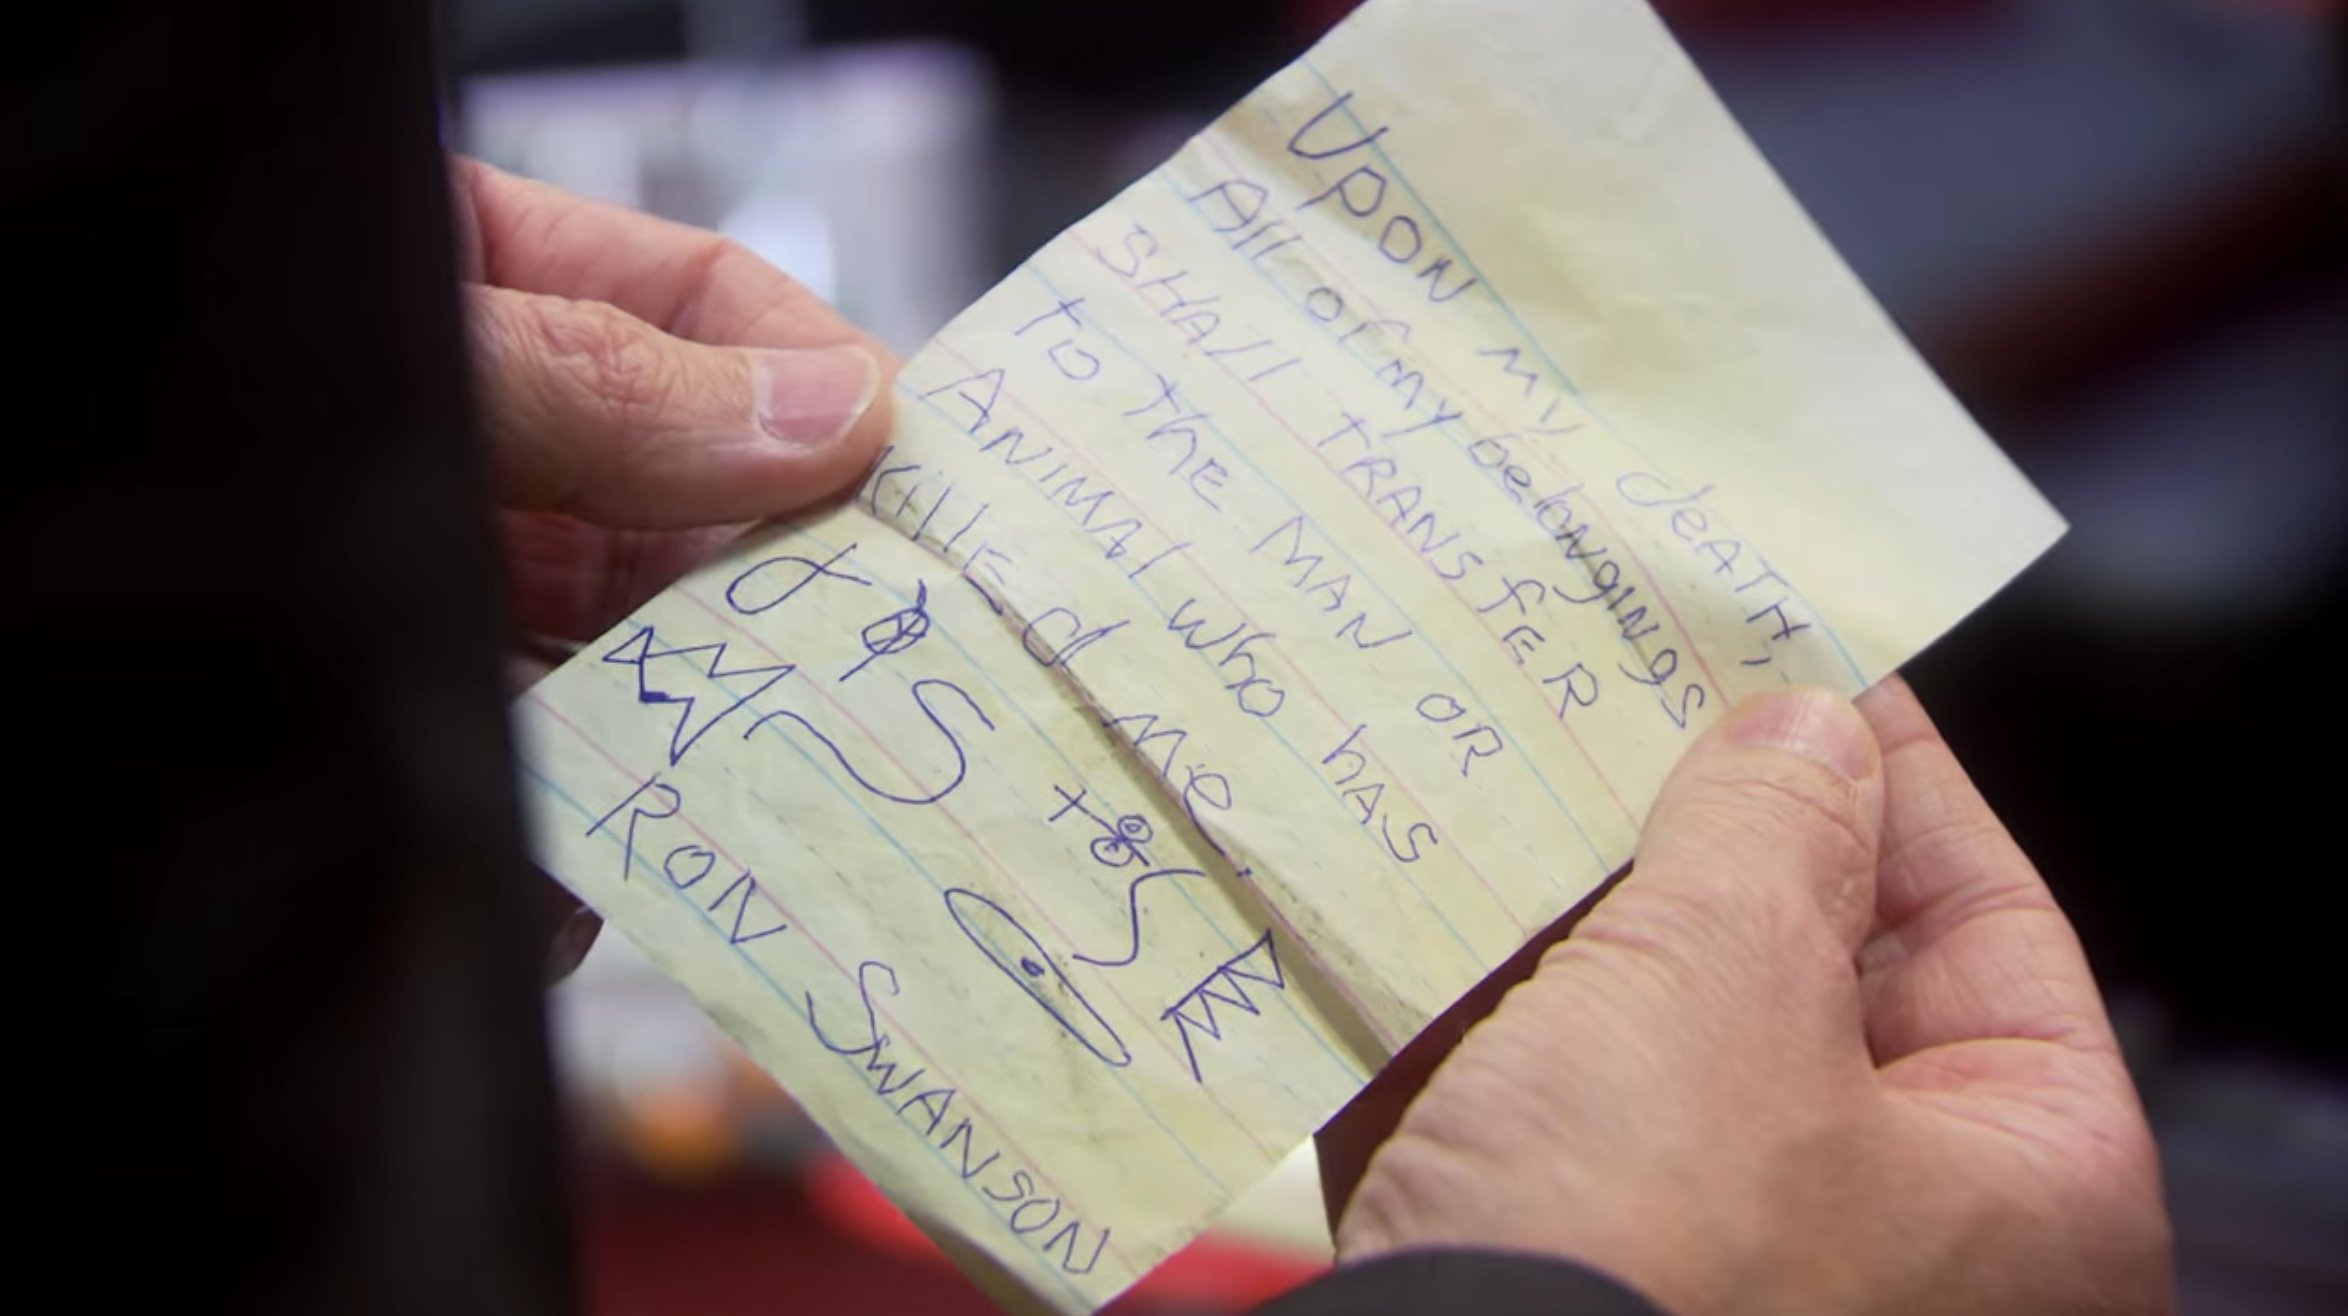 Upon my death,
All of my belongings
SHAll TRANSfER
to the MAN OR
ANIMAl who hAS
killed me.
RON SWANSON